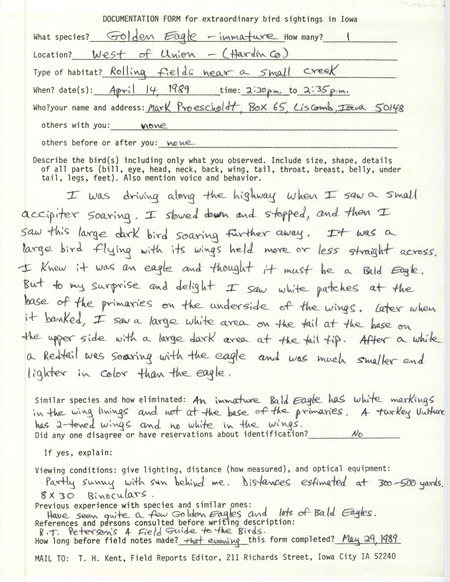 DOCUMENTATION FORM for extraordinary bird sightings in Iowa
What species? Golden Eagle - immature How many? 1
Location? West of Union - (Hardin Co)
Type of habitat? Rolling fields near a small creek
When? date(s): April 14, 1989 time: 2:30pm. to 2:35p.m.
Who?your name and address: Mark Proescholdt, Box 65, Liscomb, Iowa 50148
others with you: none
others before or after you: none
Describe the bird(s) including only what you observed. Include size, shape, details
of all parts (bill, eye, head, neck, back, wing, tail, throat, breast, belly, under
tail, legs, feet). Also mention voice and behavior.
I was driving along the highway when I saw a small
accipiter soaring. I slowed down and stopped, and then I
saw this large dark bird soaring further away. It was a
large bird flying with its wings held more or less straight across.
I knew it was an eagle and thought it must be a Bald Eagle.
But to my surprise and delight I saw white patches at the
base of the primaries on the underside of the wings. Later when
it banked, I saw a large white area on the tail at the base on
the upper side with a large dark area at the tail tip. After a while
a Redtail was soaring with the eagle and was much smaller and
lighter in color than the eagle.
Similar species and how eliminated: An immature Bald Eagle has white markings
in the wing linings and not at the base of the primaries. A Turkey Vulture
has 2-toned wings and no white in the wings.
Did any one disagree or have reservations about identification? No
If yes, explain:
Viewing conditions: give lighting, distance (how measured), and optical equipment:
Partly sunny with sun behind me. Distances estimated at 300-500 yards.
8 X 30 Binoculars.
Previous experience with species and similar ones:
Have seen quite a few Golden Eagles and lots of Bald Eagles.
References and persons consulted before writing description:
R.T. Peterson's A Field Guide to the Birds.
How long before field notes made? that evening this form completed? May 29, 1989
MAIL TO: T. H. Kent, Field Reports Editor, 211 Richards Street, Iowa City IA 52240